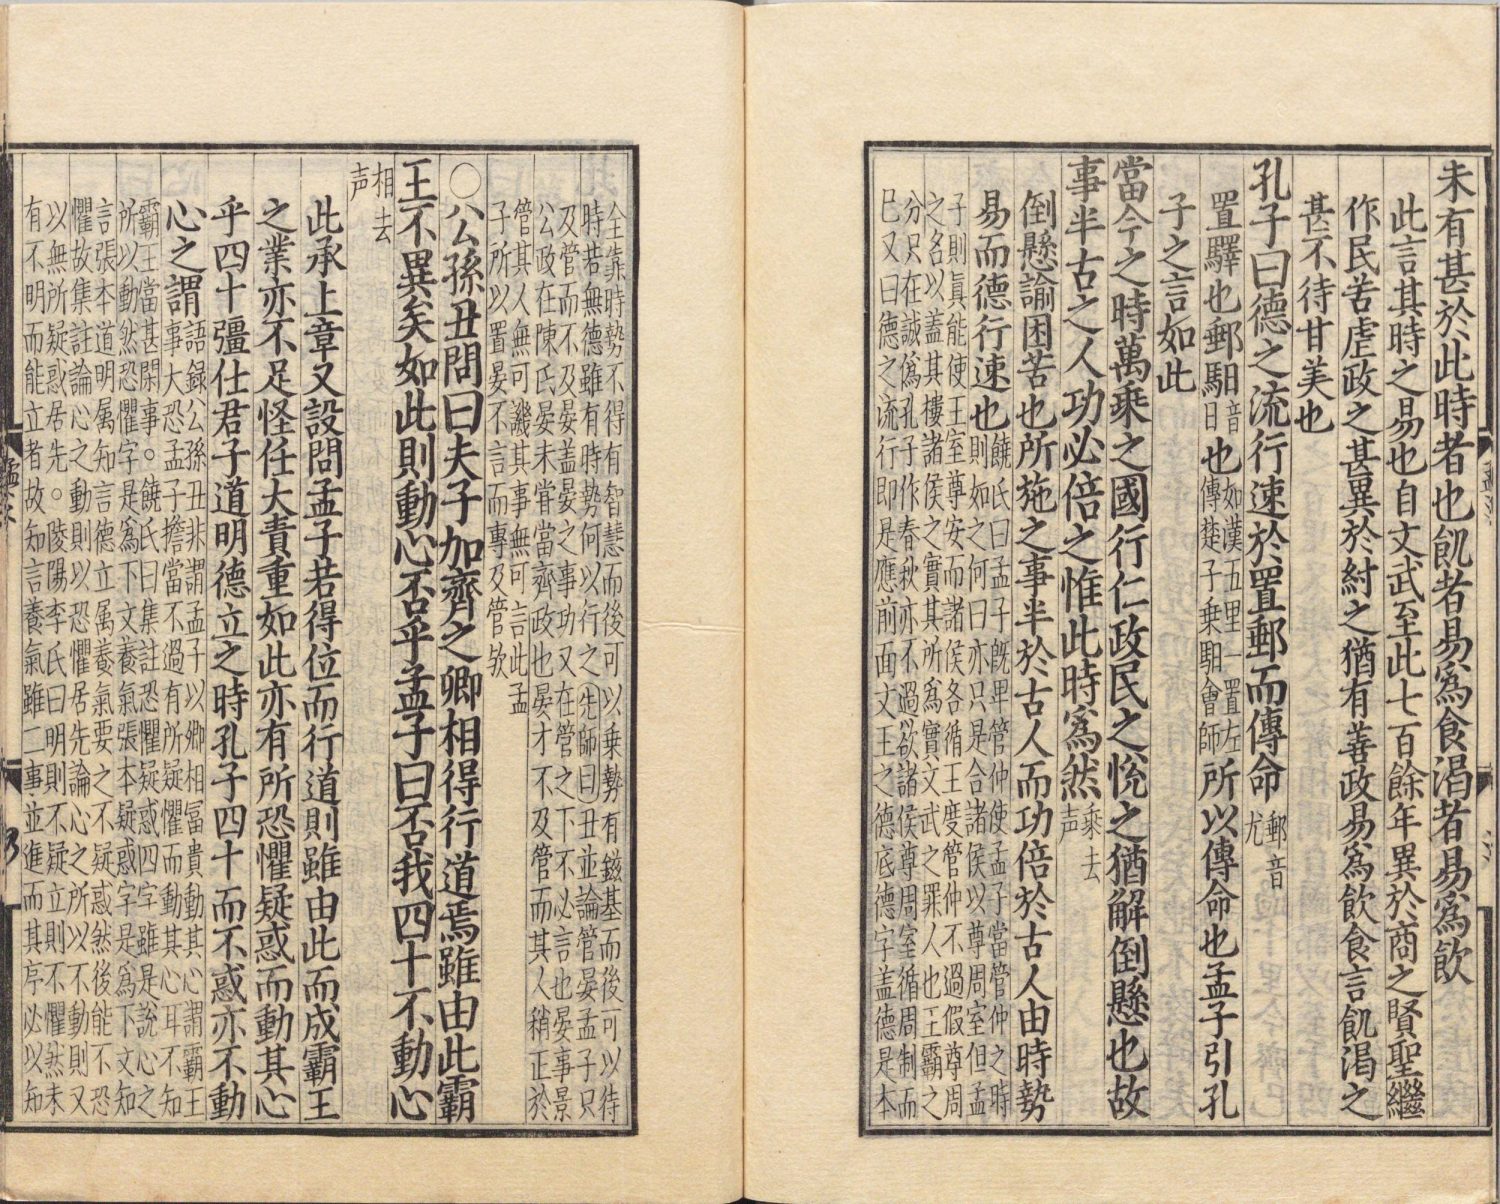 未有甚於此時者也飢者易爲食渴者易爲飲
此言其時之易也自文武至此七百餘年異於商之賢聖繼
作民苦虐政之甚異於紂之猶有善政易爲飲食言飢渴之
甚不待甘美也
孔子曰德之流行速於置郵而傳命郵音尤
置驛也郵馹音日也如漢五里一置左傳楚子乗馹會師所以傳命也孟子引孔
子之言如此
當今之時萬乘之國行仁政民之悅之猶解倒懸也故
事半古之人功必倍之惟此時爲然乘去声
倒懸諭困苦也所施之事半於古人而功倍於古人由時勢
易而德行速也饒氏曰孟子旣卑管仲使孟子當管仲之時
則如之何曰亦只是合諸侯以尊周室但孟
子則眞能使王室尊安而諸侯各循王度管仲不過假尊周
之名以蓋其摟諸侯之實其所爲實文武之罪人也王霸之
分只在誠僞孔子作春秋亦不過欲諸侯尊周室循周制而
已又曰德之流行即是應前面文王之德底德字盖德是本
全靠時勢不得有智慧而後可以乗勢有鎡基而後可以待
時若無德雖有時勢何以行之先師曰丑並論管晏孟子只
及管而不及晏盖晏之事功又在管之下不必言也晏事景
公政在陳氏晏未甞當齊政也晏才不及管而其人稍正於
管其人無可譏其事無可言此孟
子所以置晏不言而專及管欤
○公孫丑問曰夫子加齊之卿相得行道焉雖由此霸
王不異矣如此則動心否乎孟子曰否我四十不動心
相去声
此承上章又設問孟子若得位而行道則雖由此而成霸王
之業亦不足怪任大責重如此亦有所恐懼疑惑而動其心
乎四十彊仕君子道明德立之時孔子四十而不惑亦不動
心之謂語錄公孫丑非謂孟子以卿相冨貴動其心謂霸王
事大恐孟子擔當不過有所疑懼而動其心耳不知
霸王當甚閑事。饒氏曰集註恐懼疑惑四字雖是說心之
所以動然恐懼字是爲下文養氣張本疑惑字是爲下文知
言張本道明属知言德立属養氣要之不疑惑然後能不恐
懼故集註論心之動則以恐懼居先論心之所以不動則又
以無所疑惑居先。陵陽李氏曰明則不疑立則不懼然未
有不明而能立者故知言養氣雖二事並進而其亭必以知